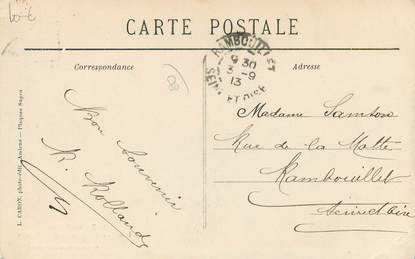 CARTE POSTALE
Correspondance
Adresse
RAMBOUILLET
9 30
3 -9
13
SEINE ET OISE
88
Bon souvenir
R. Rolland
Madame
Rue de la Motte
Rambouillet
Seine et Oise
L. CARON, photo-édit. Amiens — Plaques